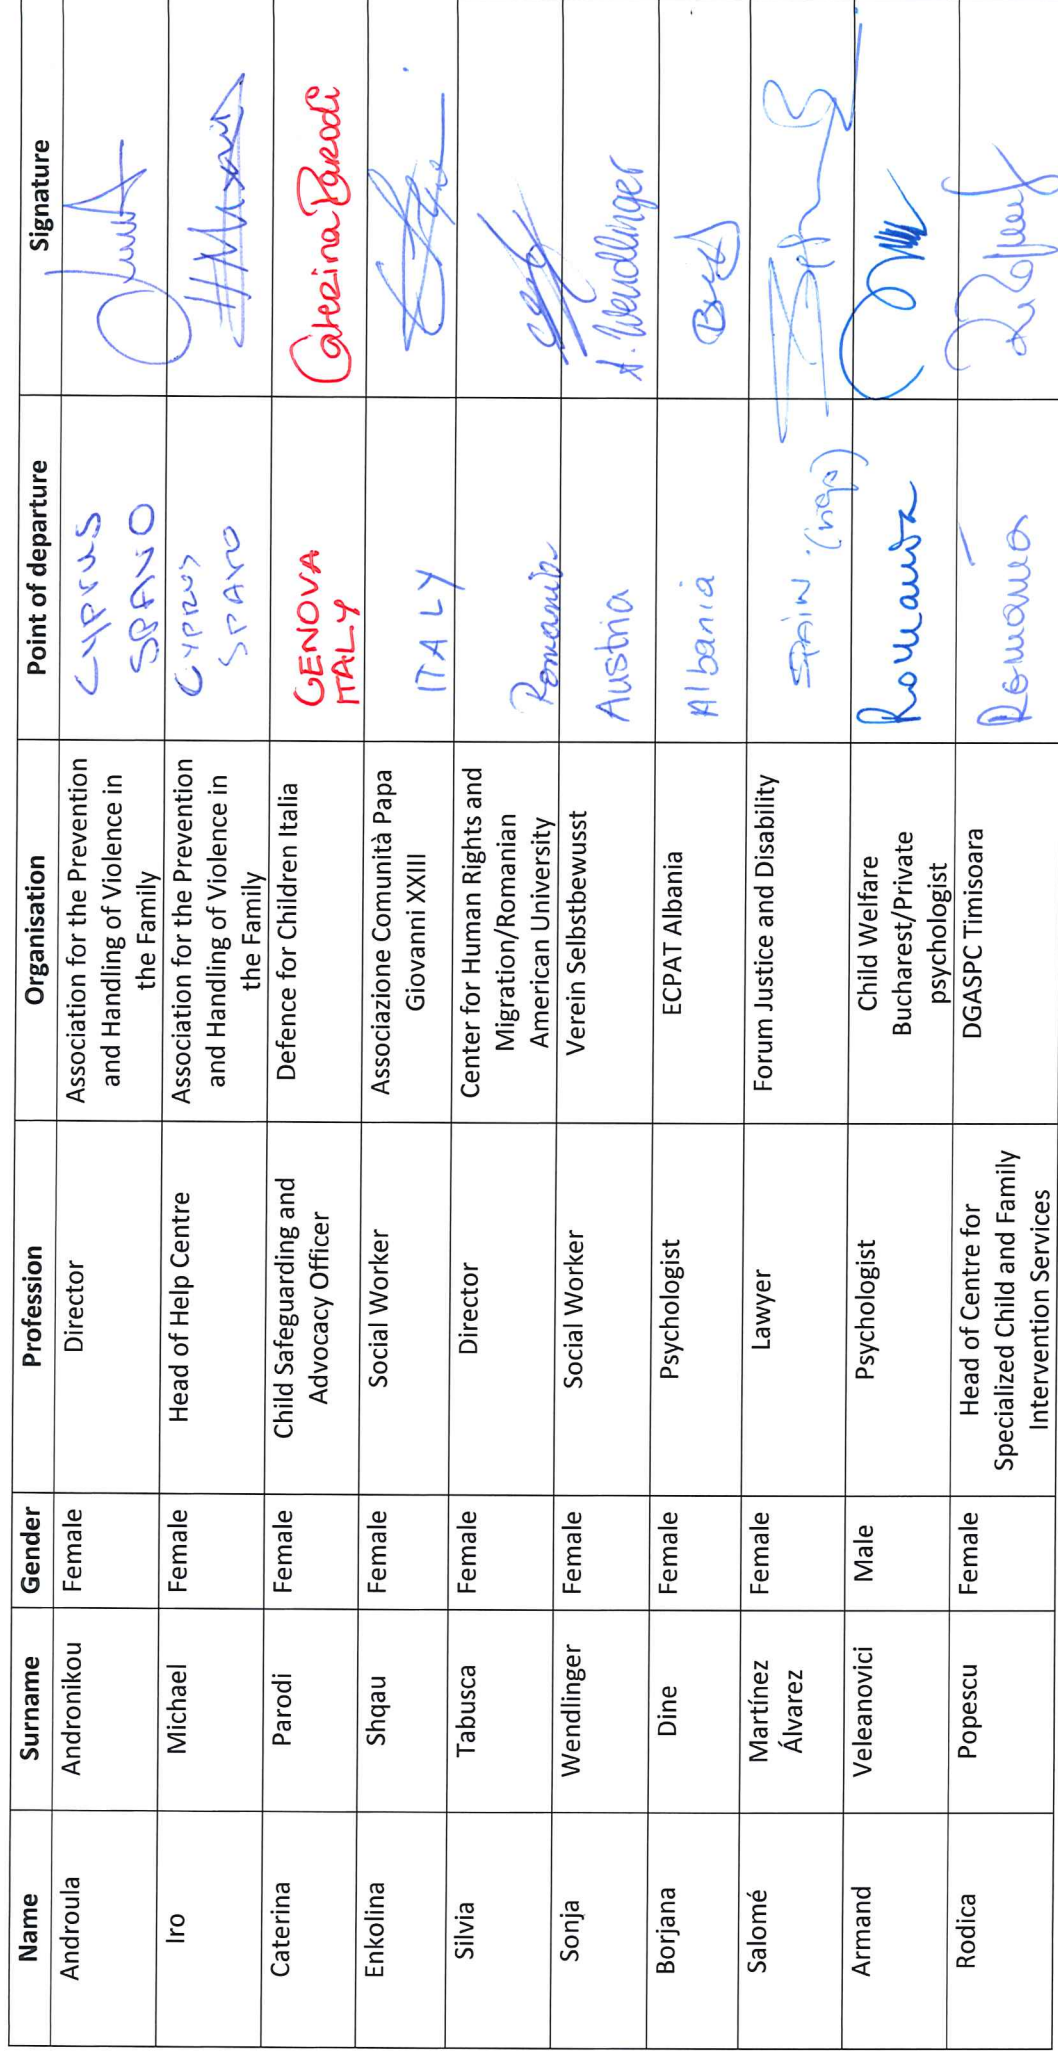 Name Surname Gender Profession Organisation Point of departure Signature
Androula Andronikou Female Director Association for the Prevention CYPRUS
and Handling of Violence in SPAVO
the Family
Iro Michael Female Head of Help Centre Association for the Prevention CYPRUS
and Handling of Violence in SPAVO
the Family
Caterina Parodi Female Child Safeguarding and Defence for Children Italia GENOVA Caterina Parodi
Advocacy Officer ITALY
Enkolina Shqau Female Social Worker Associazione Comunità Papa ITALY
Giovanni XXIII
Silvia Tabusca Female Director Center for Human Rights and Romania
Migration/Romanian
American University
Sonja Wendlinger Female Social Worker Verein Selbstbewusst Austria S. Wendlinger
Borjana Dine Female Psychologist ECPAT Albania Albania
Salomé Martínez Female Lawyer Forum Justice and Disability SPAIN
Álvarez
Armand Veleanovici Male Psychologist Child Welfare Romania
Bucharest/Private
psychologist
Rodica Popescu Female Head of Centre for DGASPC Timisoara Romania
Specialized Child and Family
Intervention Services